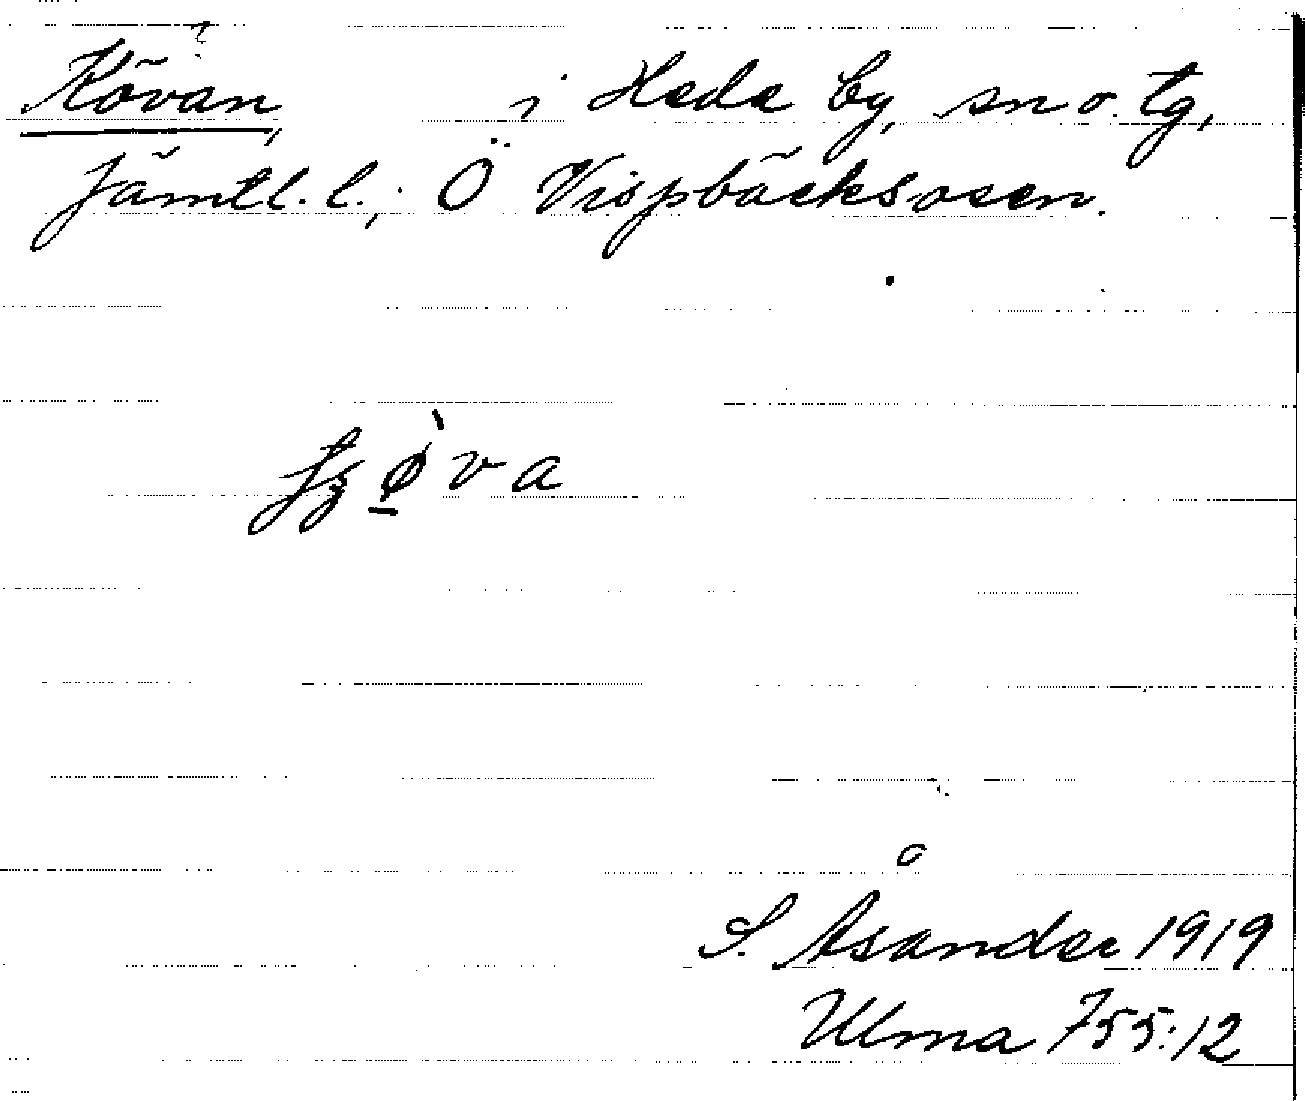 Kövan, i Hede by, sn o. tg,
Jämtl. l.; Ö Vispbäcksosen.
S. Åsander 1919
Ulma 755:12